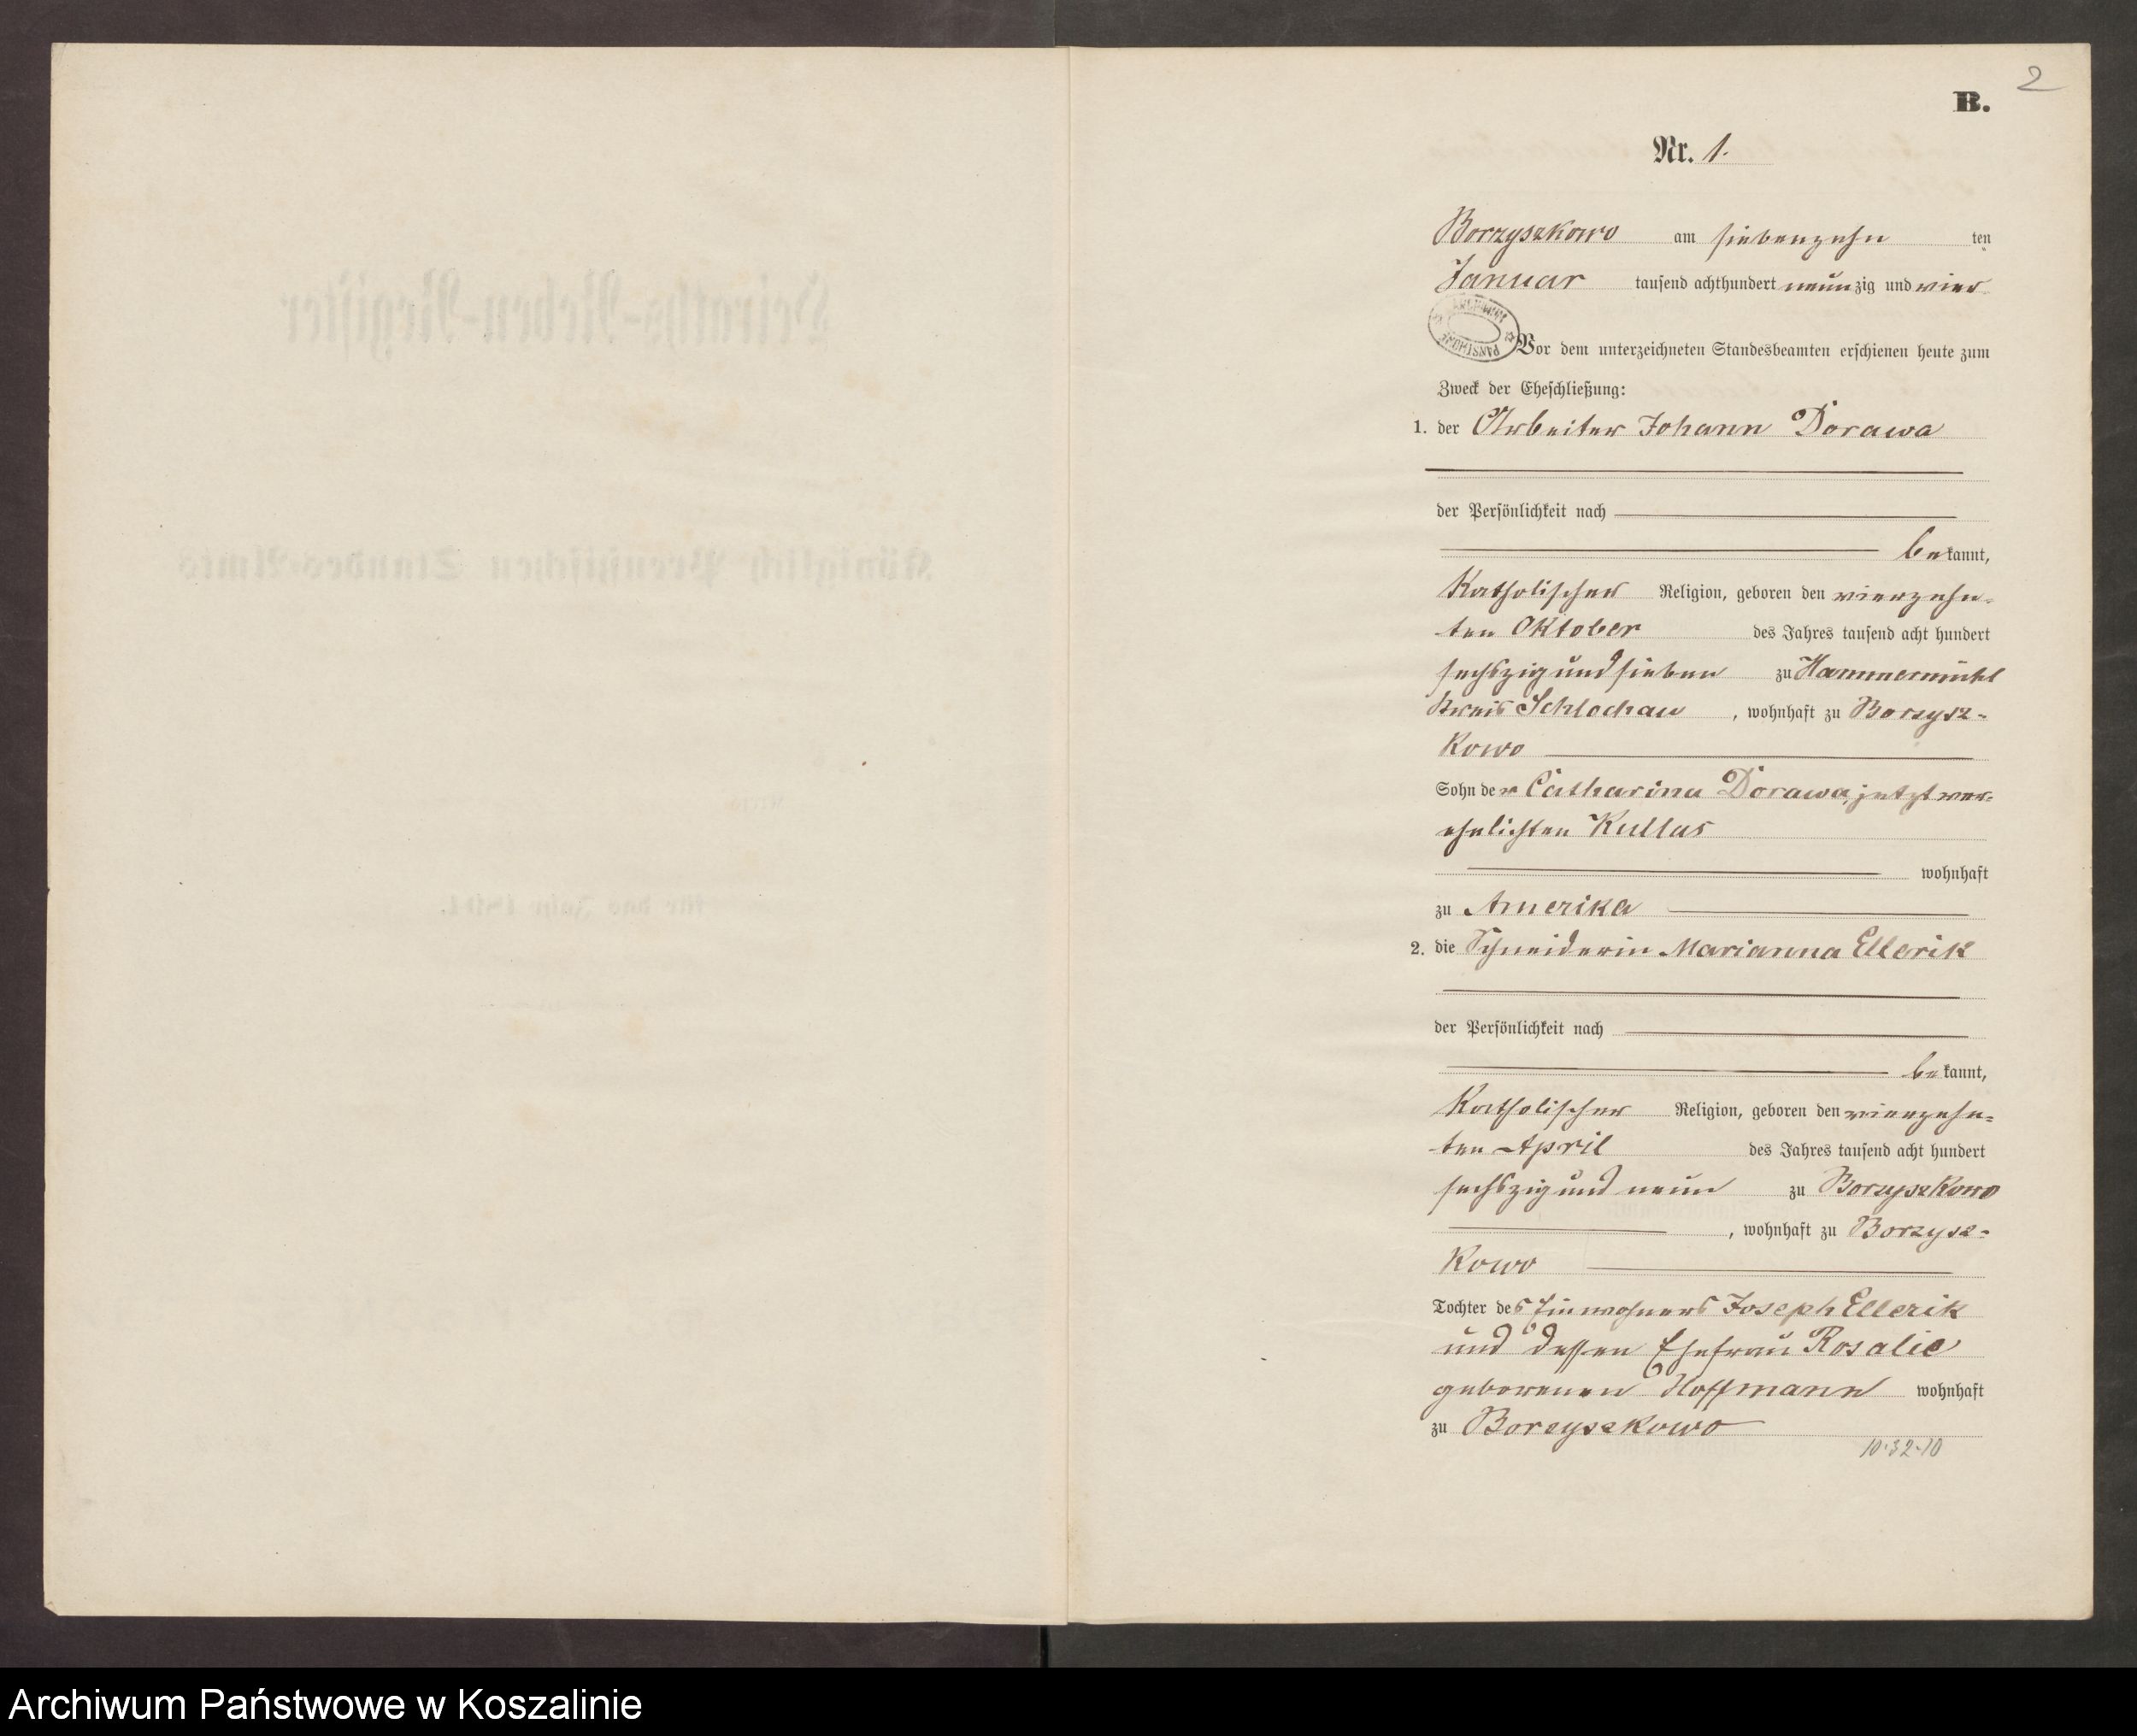 2
B.
Nr. 1.
Borzyszkowo am siebenzehn ten
Januar tausend achthundert neunzig und vier
Vor dem unterzeichneten Standesbeamten erschienen heute zum
Zweck der Eheschließung:
1. der Arbeiter Johann Dorawa
der Persönlichkeit nach
bekannt,
Katholischer Religion, geboren den vierzehn-
ten Oktober des Jahres tausend acht hundert
sechszig und sieben zu Hammermühl
Kreis Schlochau, wohnhaft zu Borzysz-
kowo
Sohn der Catharina Dorawa, jetzt ver-
ehelichten Kullas
wohnhaft
zu Amerika
2. die Schneiderin Marianna Ellerik
der Persönlichkeit nach
bekannt,
Katholischer Religion, geboren den vierzehn-
ten April des Jahres tausend acht hundert
sechszig und neun zu Borzyszkowo
, wohnhaft zu Borzysz-
kowo
Tochter des Einwohners Joseph Ellerik
und dessen Ehefrau Rosalie
geborenen Hoffmann wohnhaft
zu Borzyszkowo
10·32·10
Heiraths-Neben-Register
Königlich Preußischen Standes-Amts
für das Jahr 1894.
Archiwum Państwowe w Koszalinie